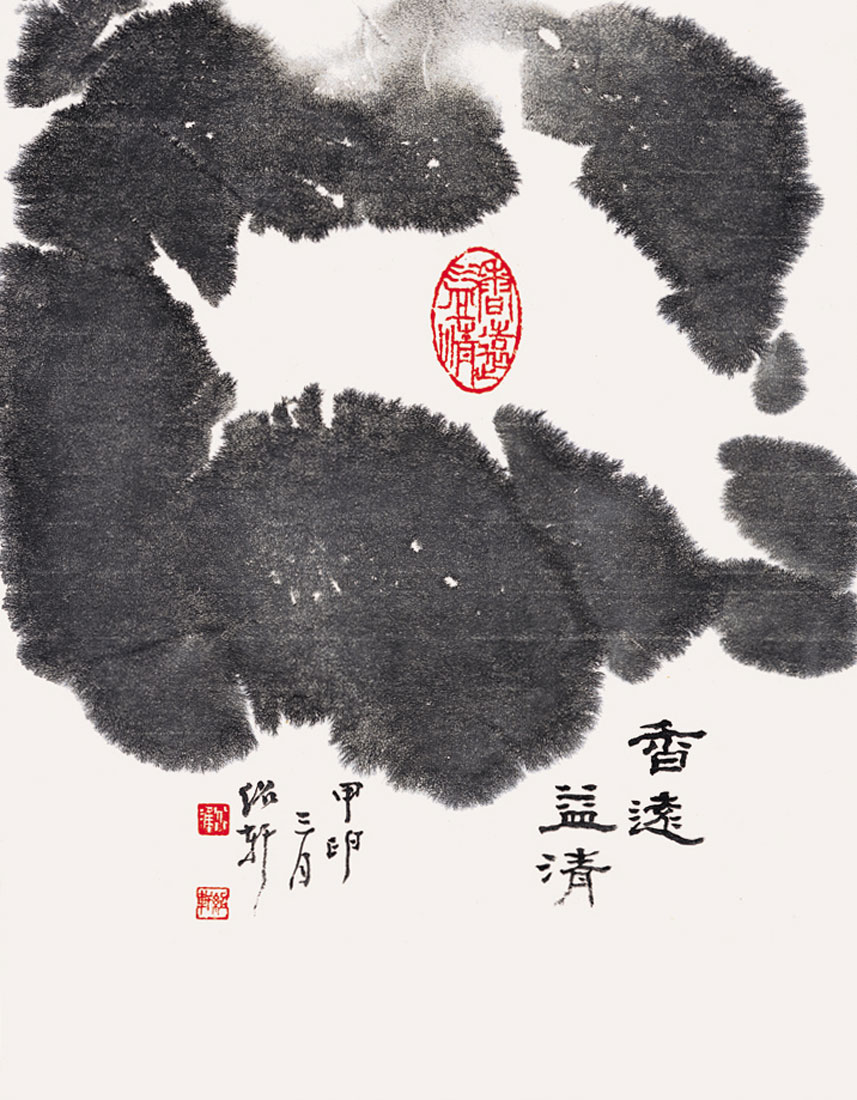 香遠
益清
香遠
益清
甲
三月
绍轩
紹軒